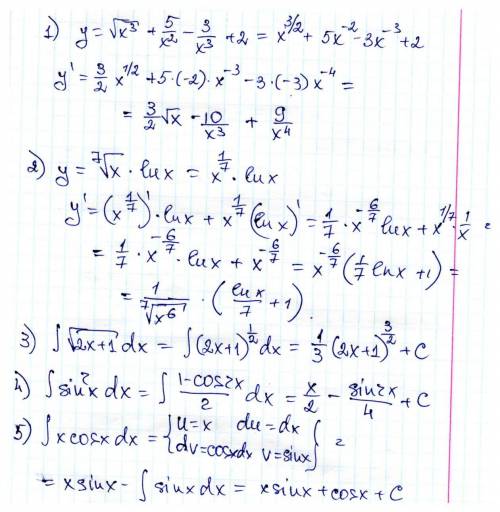 1) y = √x³ + 5/x² - 3/x³ + 2 = x^(3/2) + 5x^(-2) - 3x^(-3) + 2
y' = 3/2 x^(1/2) + 5·(-2)·x^(-3) - 3·(-3)x^(-4) =
= 3/2 √x - 10/x³ + 9/x⁴
2) y = ⁷√x · lnx = x^(1/7) · lnx
y' = (x^(1/7))' · lnx + x^(1/7) (lnx)' = 1/7 · x^(-6/7) lnx + x^(1/7) · 1/x =
= 1/7 · x^(-6/7) · lnx + x^(-6/7) = x^(-6/7) (1/7 lnx + 1) =
= 1/⁷√x⁶ · (lnx/7 + 1).
3) ∫ √2x+1 dx = ∫ (2x+1)^(1/2) dx = 1/3 (2x+1)^(3/2) + C
4) ∫ sin²x dx = ∫ (1-cos2x)/2 dx = x/2 - sin2x/4 + C
5) ∫ x cosx dx = {u=x du=dx
dv=cosxdx v=sinx} =
= x sinx - ∫ sinx dx = x sinx + cosx + C